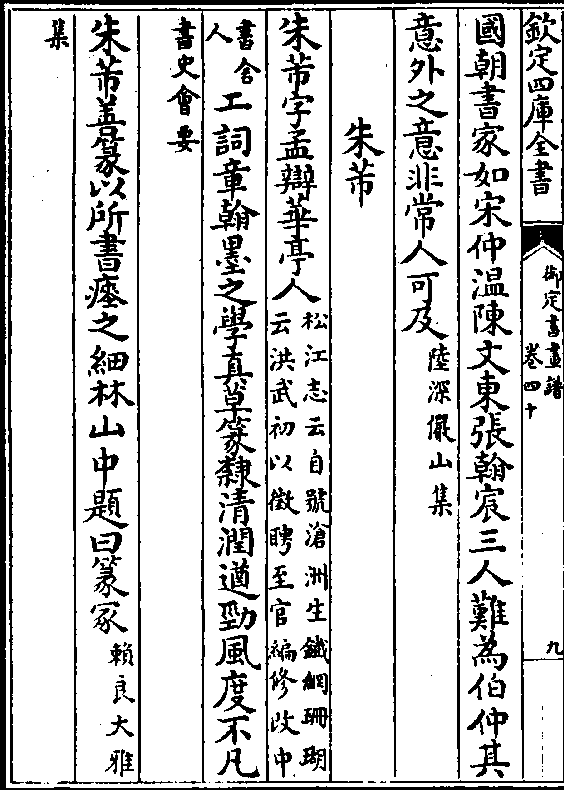 欽定四庫全書
御定書畫譜
卷四十
九
國朝書家如宋仲温陳文東張翰宸三人難為伯仲其
意外之意非常人可及陸深儼山集
朱芾
朱芾字孟辯華亭人松江志云自號滄洲生鐵網珊瑚
云洪武初以徵聘至官編修改中
書舍
人工詞章翰墨之學真草篆隸清潤遒勁風度不凡
書史會要
朱芾善篆以所書瘞之細林山中題曰篆冢賴良大雅
集